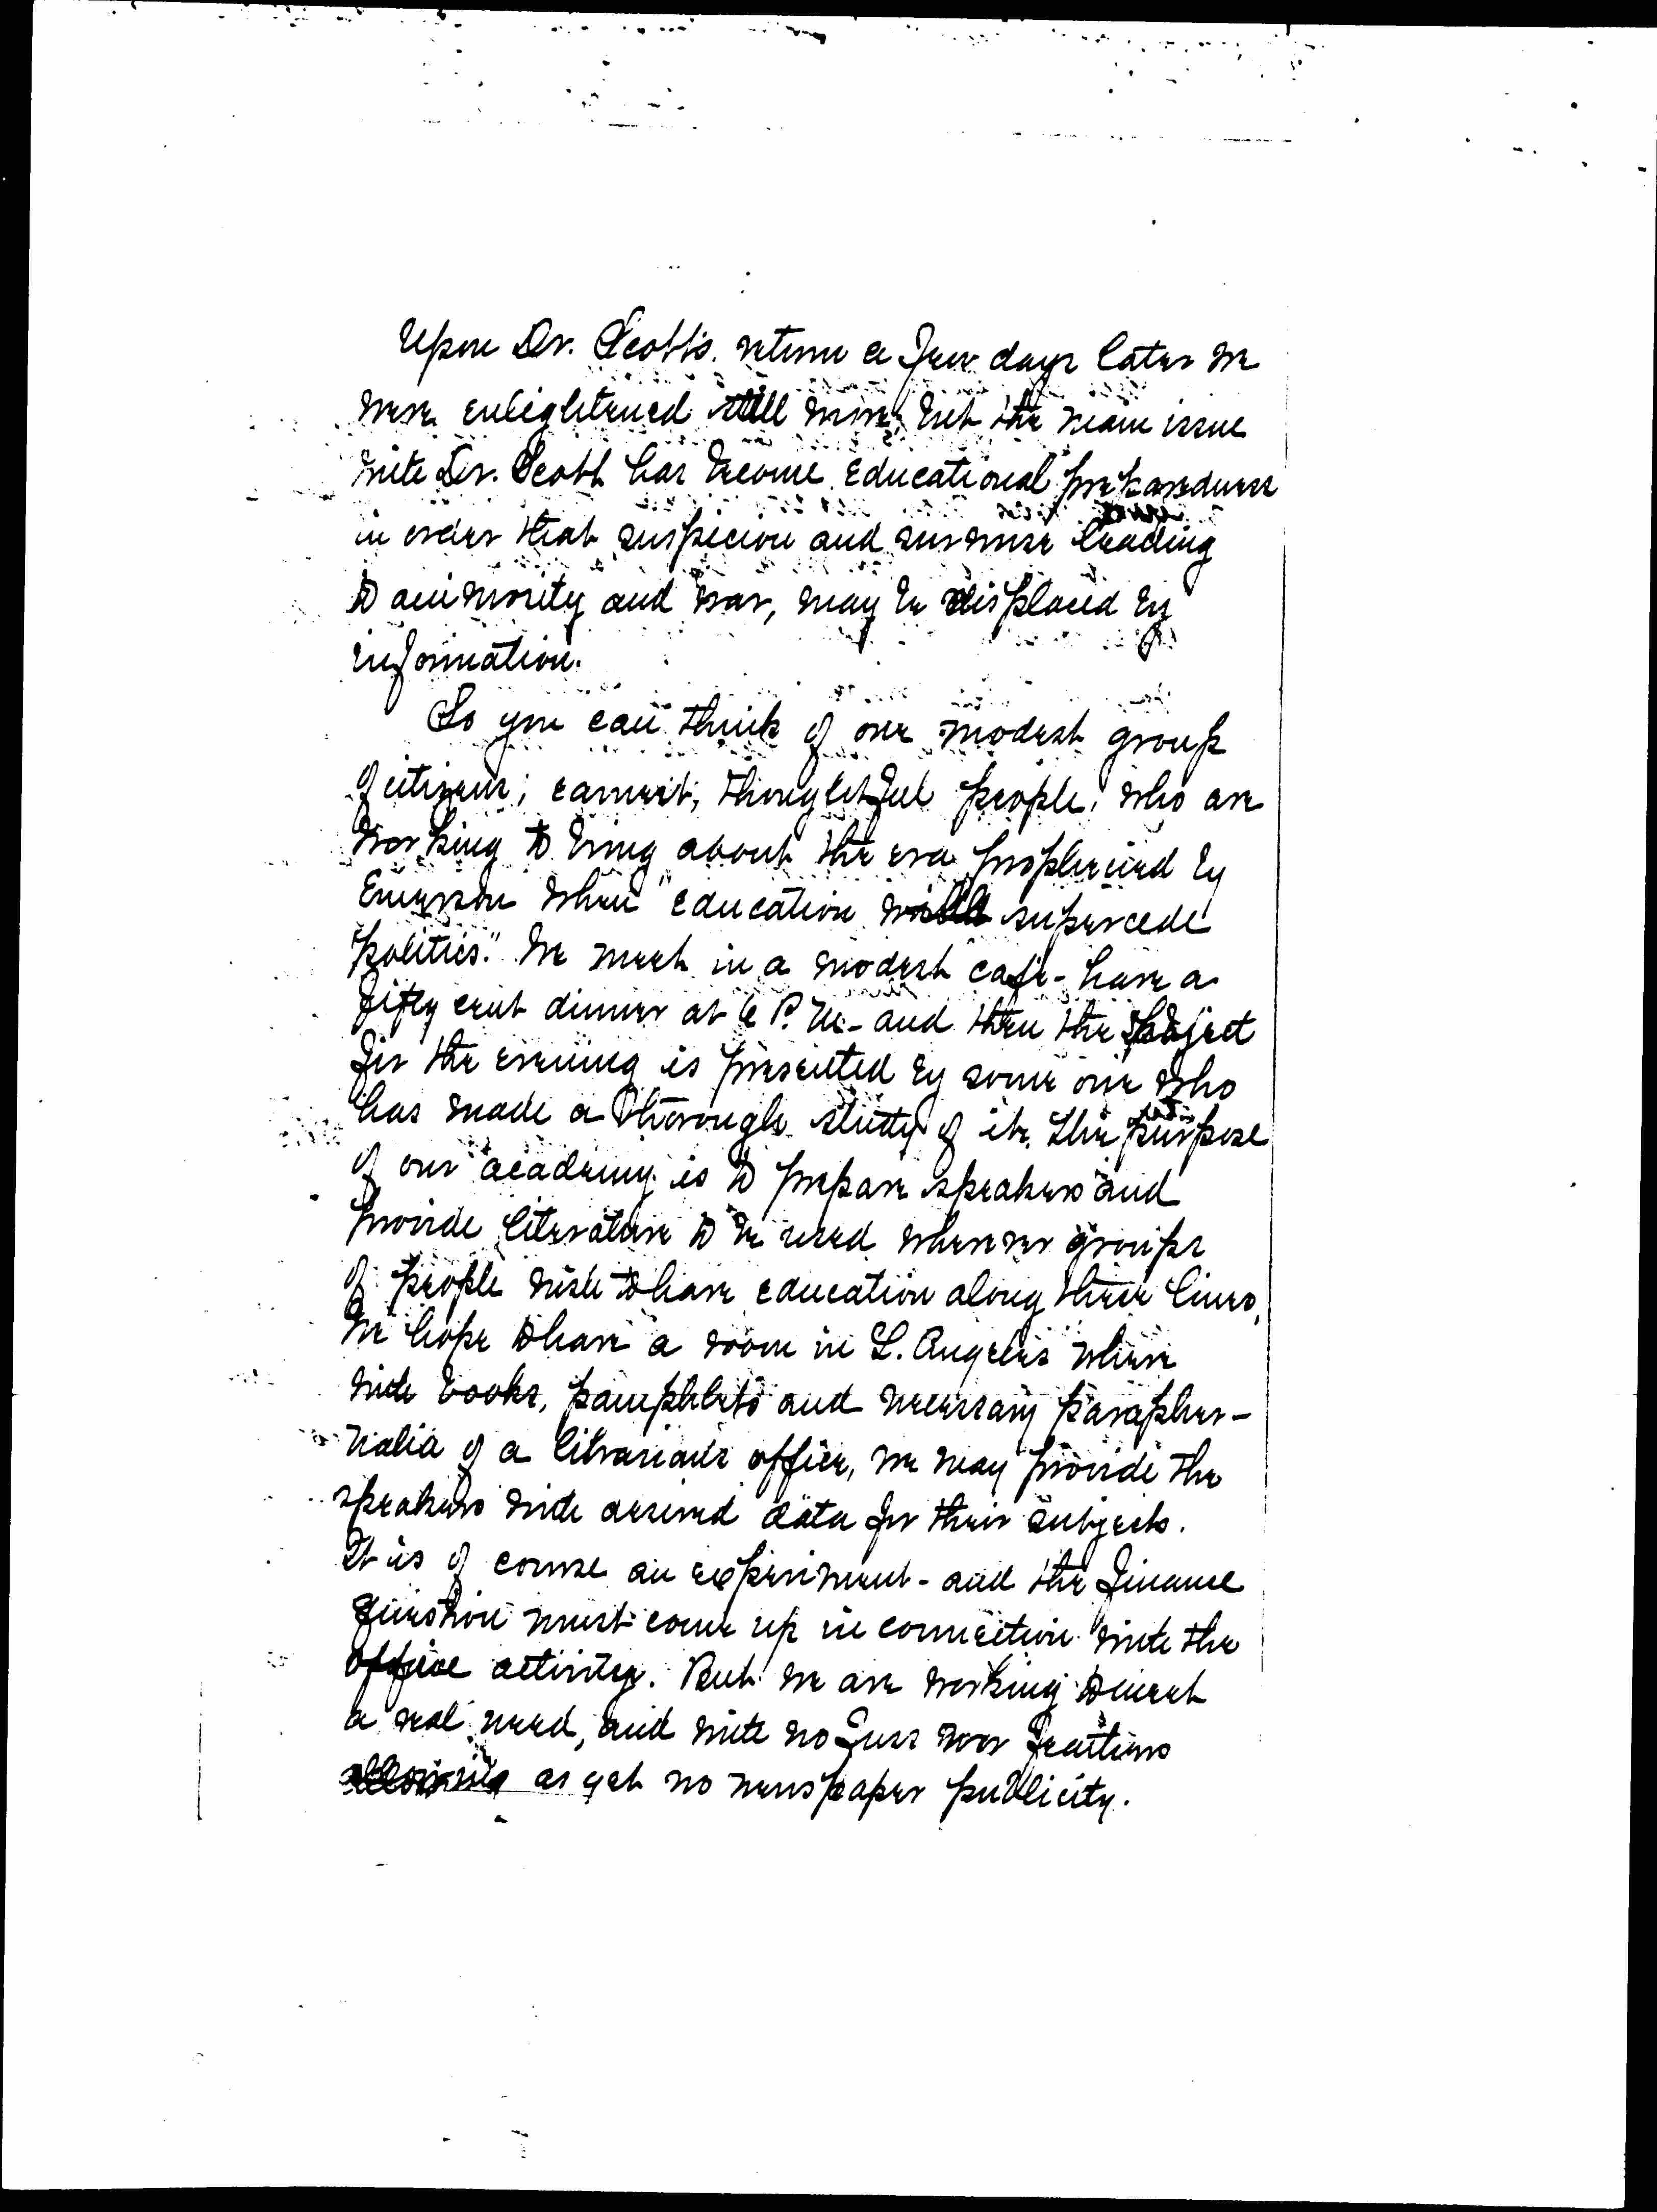 Upon Dr. Scott's return a few days later we
were enlightened still more, but the main issue
with Dr. Scott has become educational preparedness
in order that suspicion and surmise leading
to animosity and war, may be displaced by
information.
So you can think of our modest group
of citizens; earnest, thoughtful people, who are
working to bring about the era prophesied by
Emerson when "education will supercede
politics." We meet in a modest cafe - have a
fifty cent dinner at 6 P.M. - and then the subject
for the evening is presented by some one who
has made a thorough study of it. The purpose
of our academy is to prepare speakers and
provide literature to be used wherever groups
of people wish to have education along these lines.
We hope to have a room in L. Angeles where
with books, pamphlets and necessary parapher-
nalia of a librarian's office, we may provide the
speakers with desired data for their subjects.
It is of course an experiment - and the finance
question must come up in connection with the
office activity. But we are working to meet
a real need, and with no fuss nor feathers
as yet no newspaper publicity.